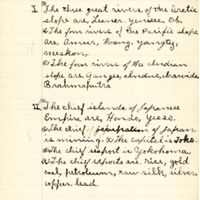 I. The three great rivers of the Arctic
slope are, Lener, Yenisee, Ob.
The four rivers of the Pacific slope
are, Amur, Hoang, Yangtej,
meakon.
The four rivers of the Indian
slope are Ganges, Indus,
Brahmaputra
II. The chief islands of Japanese
Empire are, Hondo, Yeso.
The chief occupation of Japan.
is mining. The capital is Tokio.
The chief seaport is Yokohoma.
The chief exports are, rice, gold
coal, petroleum, raw silk, silver
copper, lead.